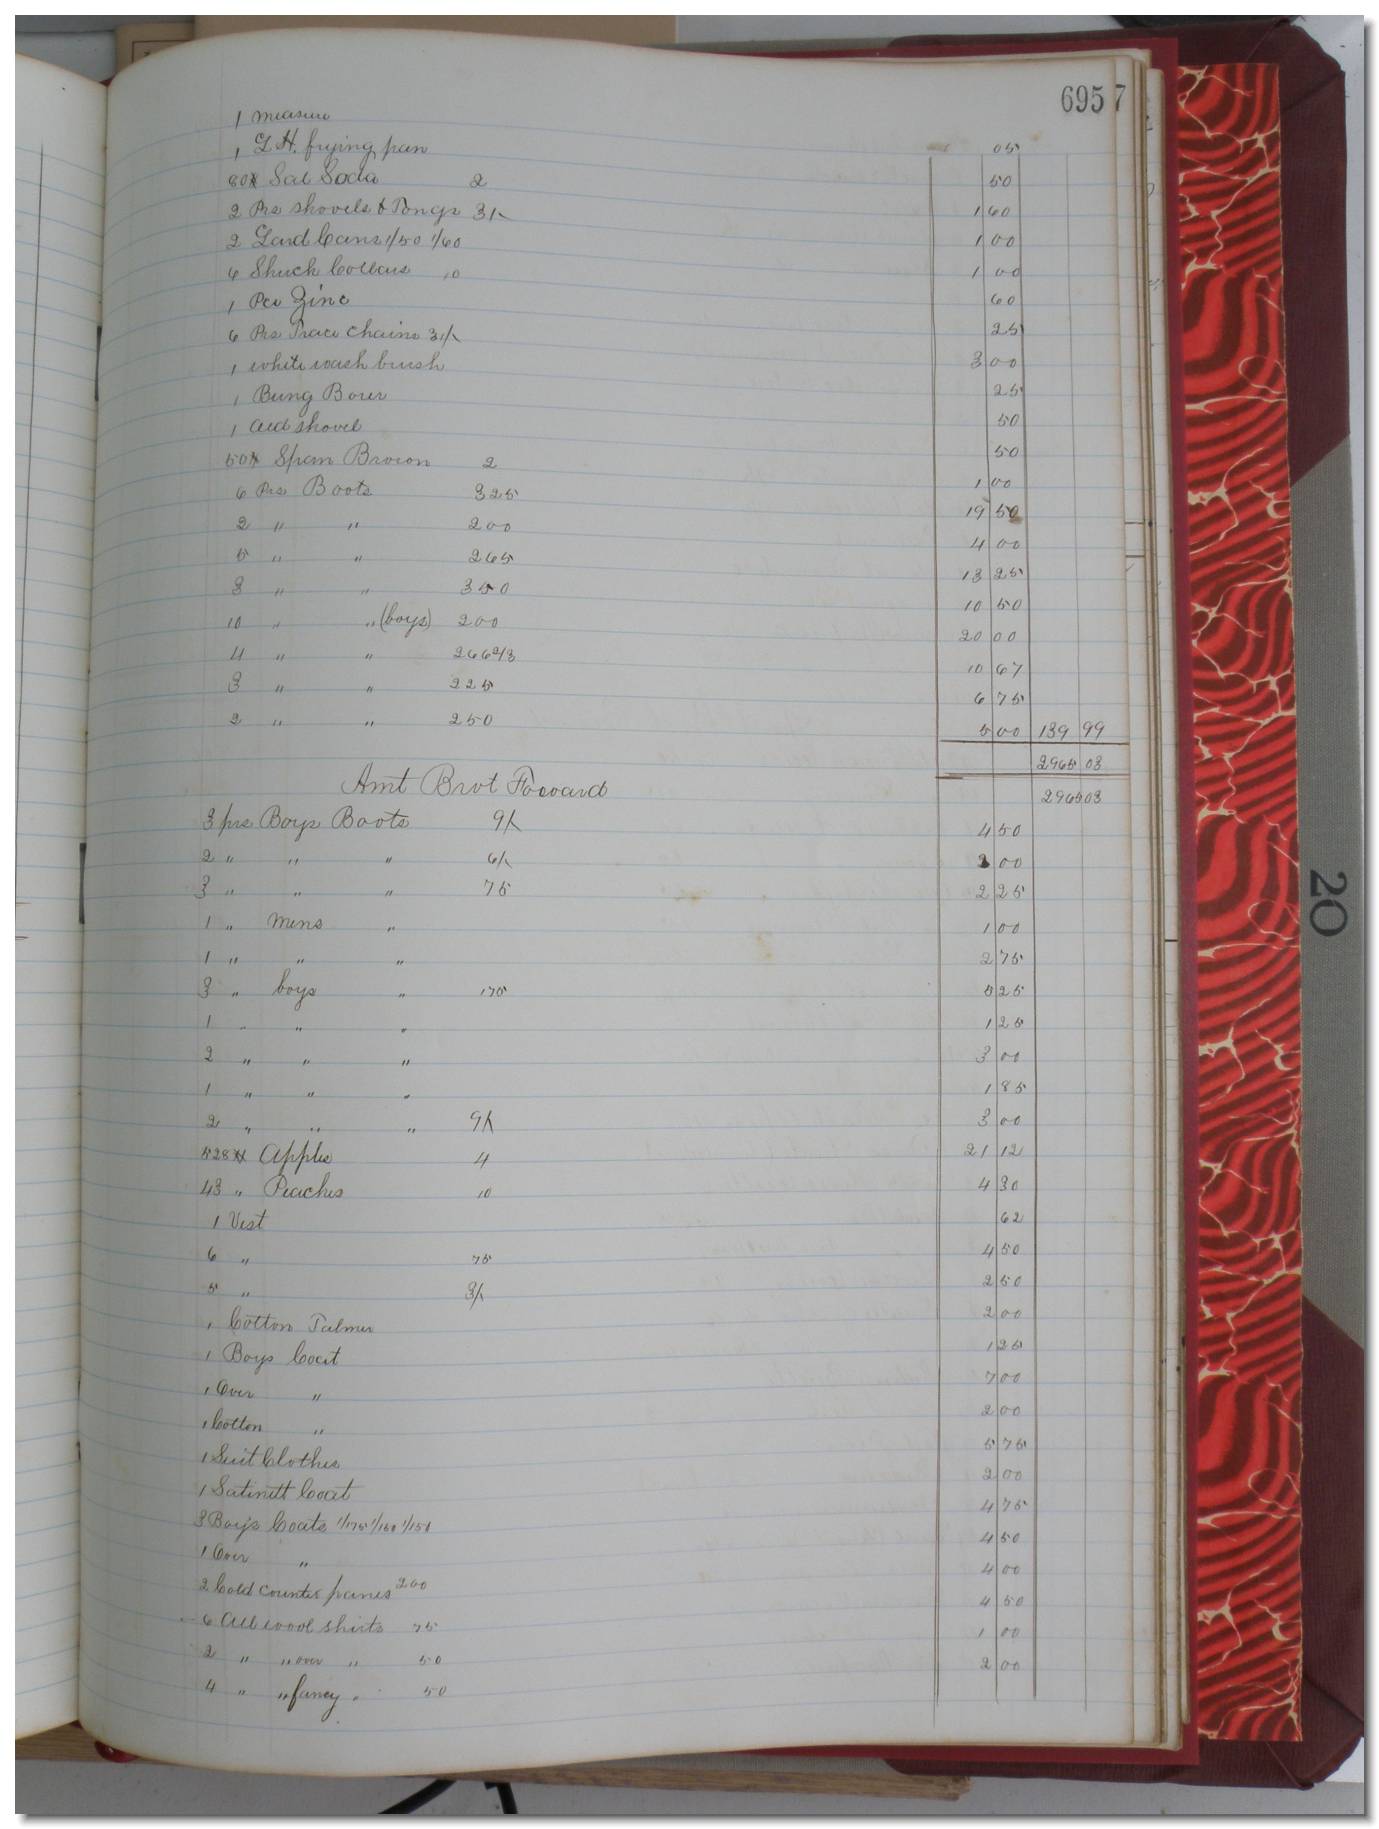 695 7
1 measure 05
1 G.H. frying pan 50
80# Sal Soda 2 1 60
2 Prs shovels & Tongs 3/- 1 00
2 Lard Cans 1/50 1/60 1 00
6 Shuck Collars 10 60
1 Pce Zinc 25
6 Prs Trace Chains 3/- 3 00
1 white wash brush 25
1 Bung Borer 50
1 old shovel 50
50# Span Brown 2 1 00
6 Prs Boots 325 19 50
2 " " 200 4 00
5 " " 265 13 25
3 " " 350 10 50
10 " " (boys) 200 20 00
4 " " 266 2/3 10 67
3 " " 225 6 75
2 " " 250 5 00 139 99
2965 03
Amt Brot Foward 2965 03
3 prs Boys Boots 9/- 4 50
2 " " " 6/- 2 00
3 " " " 75 2 25
1 " mens " 1 00
1 " " " 2 75
3 " boys " 175 5 25
1 " " " 1 25
2 " " " 3 00
1 " " " 1 85
2 " " " 9/- 3 00
528# Apples 4 21 12
43 " Peaches 10 4 30
1 Vest 62
6 " 75 4 50
5 " 3/- 2 50
1 Cotton Talmer 2 00
1 Boys Coat 1 25
1 Over " 7 00
1 Cotton " 2 00
1 Suit Clothes 5 75
1 Satinett Coat 2 00
3 Boys Coats 1/175 1/150 1/150 4 75
1 Over " 4 50
2 Cold counter panes 200 4 00
6 All wool shirts 75 4 50
2 " " over " 50 1 00
4 " " fancy " 50 2 00
20